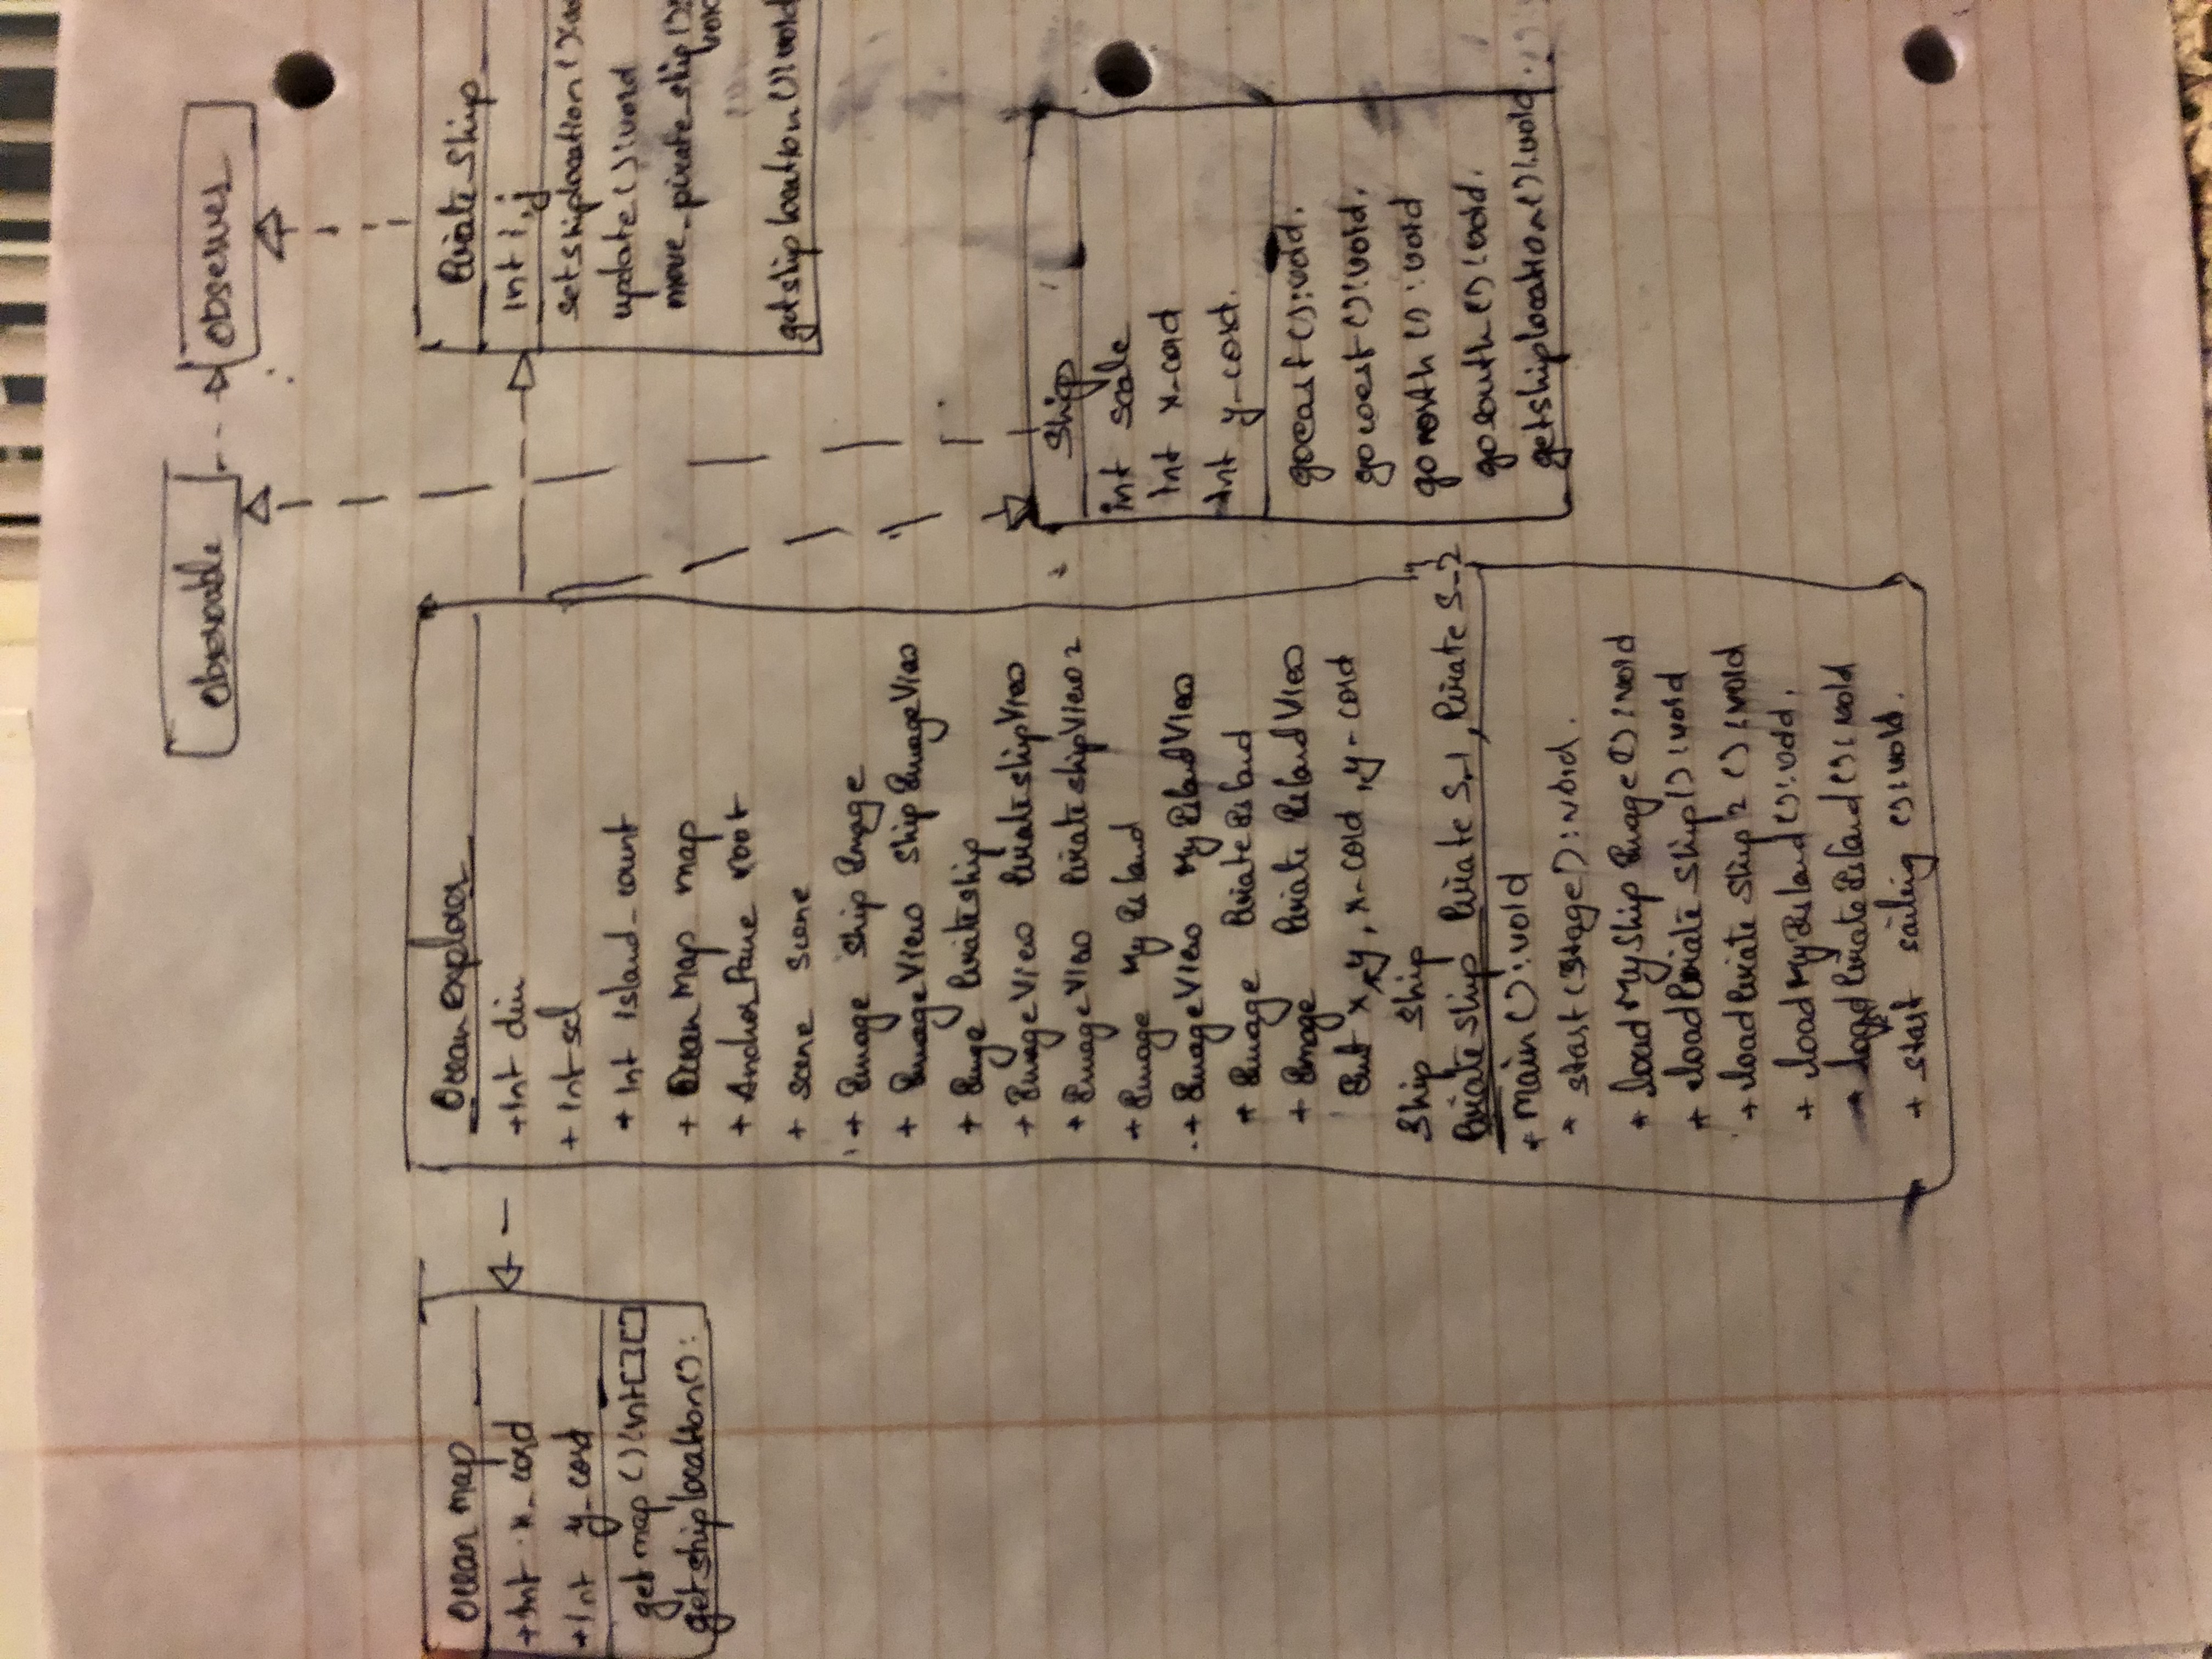 Observable
Observer
Ocean map
+Int x_cord
+Int y_cord
get map () : int[][]
getshiplocation() :
Ocean explorer
+Int dim
+ Int scl
+ Int island_count
+ Ocean Map map
+ AnchorPane root
+ scene scene
+ Image Ship Image
+ ImageView ShipImageView
+ Image Pirateship
+ ImageView PirateshipView
+ ImageView PirateshipView2
+ Image MyIsland
+ ImageView MyIslandView
+ Image PirateIsland
+ Image Pirate IslandView
Int x, y, x-cord, y-cord
Ship Ship
Pirateship Pirate S_1, Pirate S_2
+ main () : void
+ start (Stage) : void.
+ loadMyShip Image () : void
+ loadPirate Ship() : void
+ loadPirate Ship 2 () : void
+ loadMyIsland () : void.
+ loadPirateIsland () : void
+ start sailing () : void.
Pirate Ship
int i, j
setshiplocation ()
update () : void
move_pirate_ship () :
void
getship location () : void
Ship
int scale
int x-cord
int y-cord.
goeast () : void.
gowest () : void.
gonorth () : void
gosouth () : void.
getshiplocation () : void.